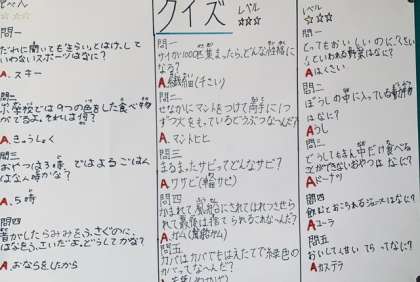 クイズ
レベル
☆☆☆
問一
だれに聞いても
いわないスポーツはなに？
A.スキー
問二
がでるよ。それは何？
A.きゅうしょく
問三
おやつは3時 ではよるごはん
はなん時かな？
A.5時
問四
音がしたらみみをふさぐのに、
はなをふさいだよ。どうしてかな？
A.おならをしたから
問一
サイが1000匹集まったら、どんな性格に
なる？
A
問二
せなかにマントをつけて両手に1つ
ずつ
A.マントヒヒ
問三
まるまったサビってどんなサビ？
A ワサビ(輪サビ)
問四
かまれて風船にされてはれつさせら
れて最後は捨てられるこれなんだ？
A.ガム(風船ガム)
問五
カバはカバでもはえたてで緑色の
カバってなーんだ？
レベル
☆☆☆
問一
とってもおいしいのに「くさい」
といわれる野菜はなに？
Aはくさい
問二
ぼうしの中に入っている動物
はなに？
Aうし
問三
どうしてもまん中だけ食べる
ことができないおやつはなに？
Aドーナツ
問四
飲むとおこられるジュースはなに？
Aコーラ
問五
おいしくて甘いてらってなに？
Aカステラ